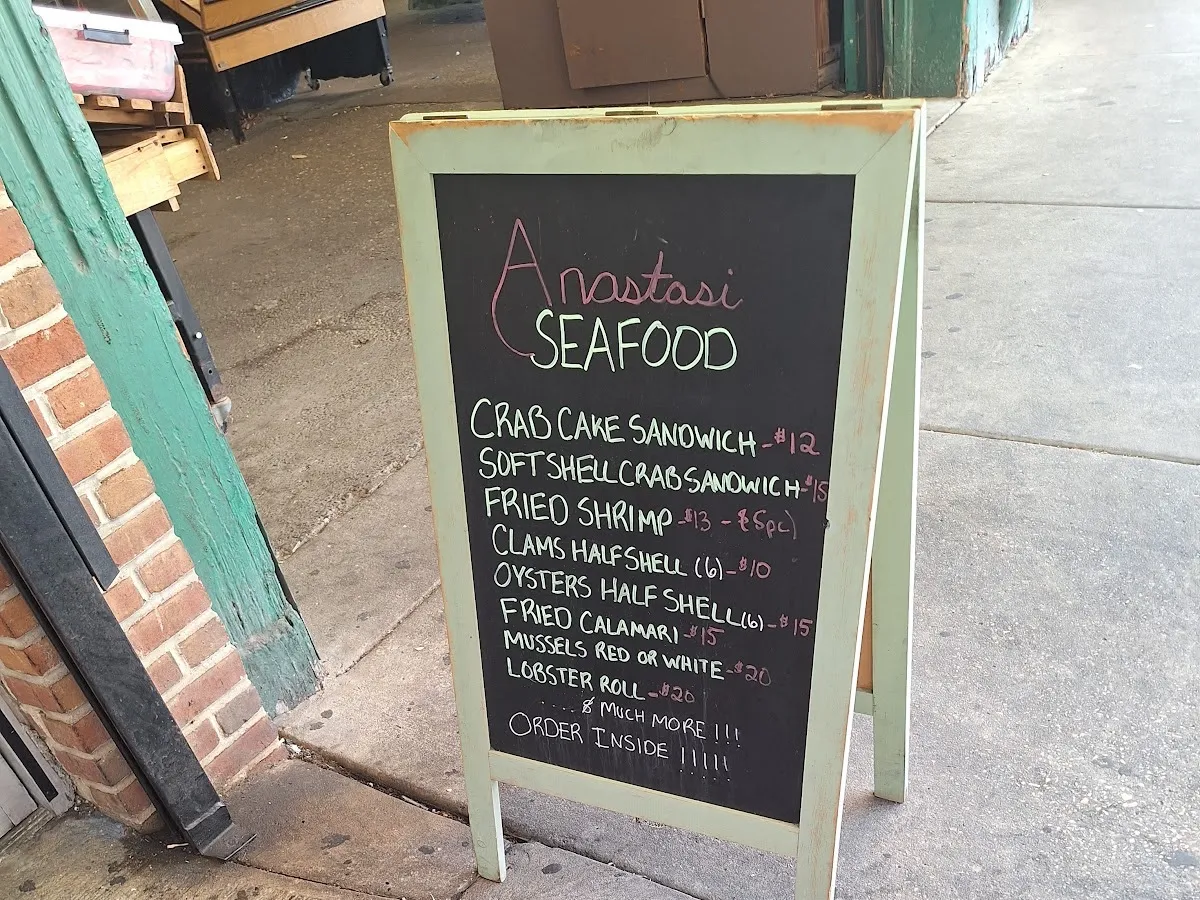 Anastasi
SEAFOOD
CRAB CAKE SANDWICH - $12
SOFT SHELL CRAB SANDWICH - $15
FRIED SHRIMP - $13 - (5pc)
CLAMS HALF SHELL (6) - $10
OYSTERS HALF SHELL (6) - $15
FRIED CALAMARI - $15
MUSSELS RED OR WHITE - $20
LOBSTER ROLL - $20
.... & MUCH MORE!!!
ORDER INSIDE !!!!!